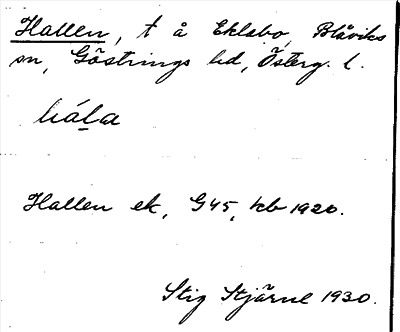 Hallen, t å Eklsbo, Blåviks
sn, Göstrings hd, Österg. l.
hála
Hallen ek, G45, kb 1920.
Stig Stjärne 1930.